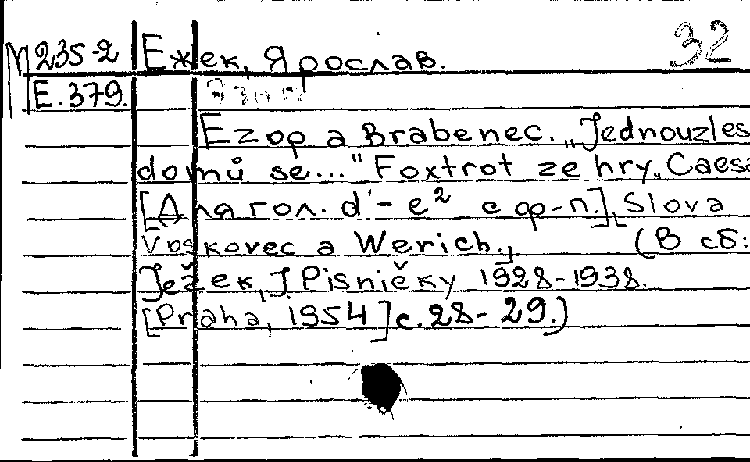 М235-2 Ежек, Ярослав. 32
Е.379.
Ezop a Brabenec. „Jednouzles
domů se..." Foxtrot ze hry „Caesa
[Для гол. d'-e² с ф-п.], Slova
Voskovec a Werich., (В сб:
Ježek, J. Pisničky 1928-1938.
[Praha, 1954] с. 28-29.)